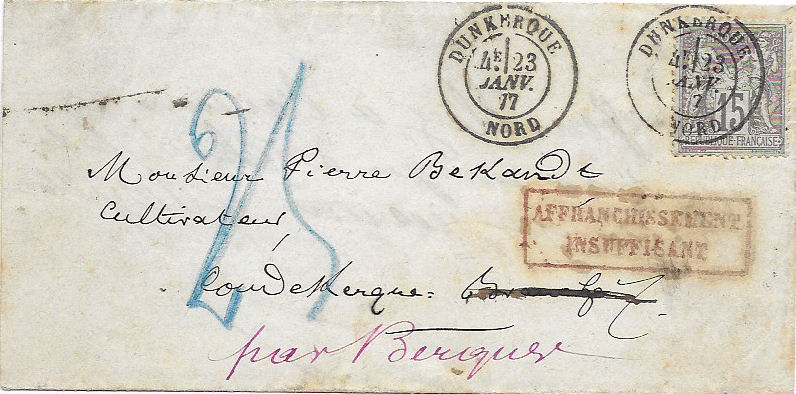 DUNKERQUE
4E 23
JANV.
77
NORD
DUNKERQUE
4E 23
JANV.
7
NORD
15
REPUBLIQUE FRANCAISE
25
Monsieur Pierre Bekandt
Cultivateur
à
Coudekerque =
AFFRANCHISSEMENT
INSUFFISANT
par Bergues